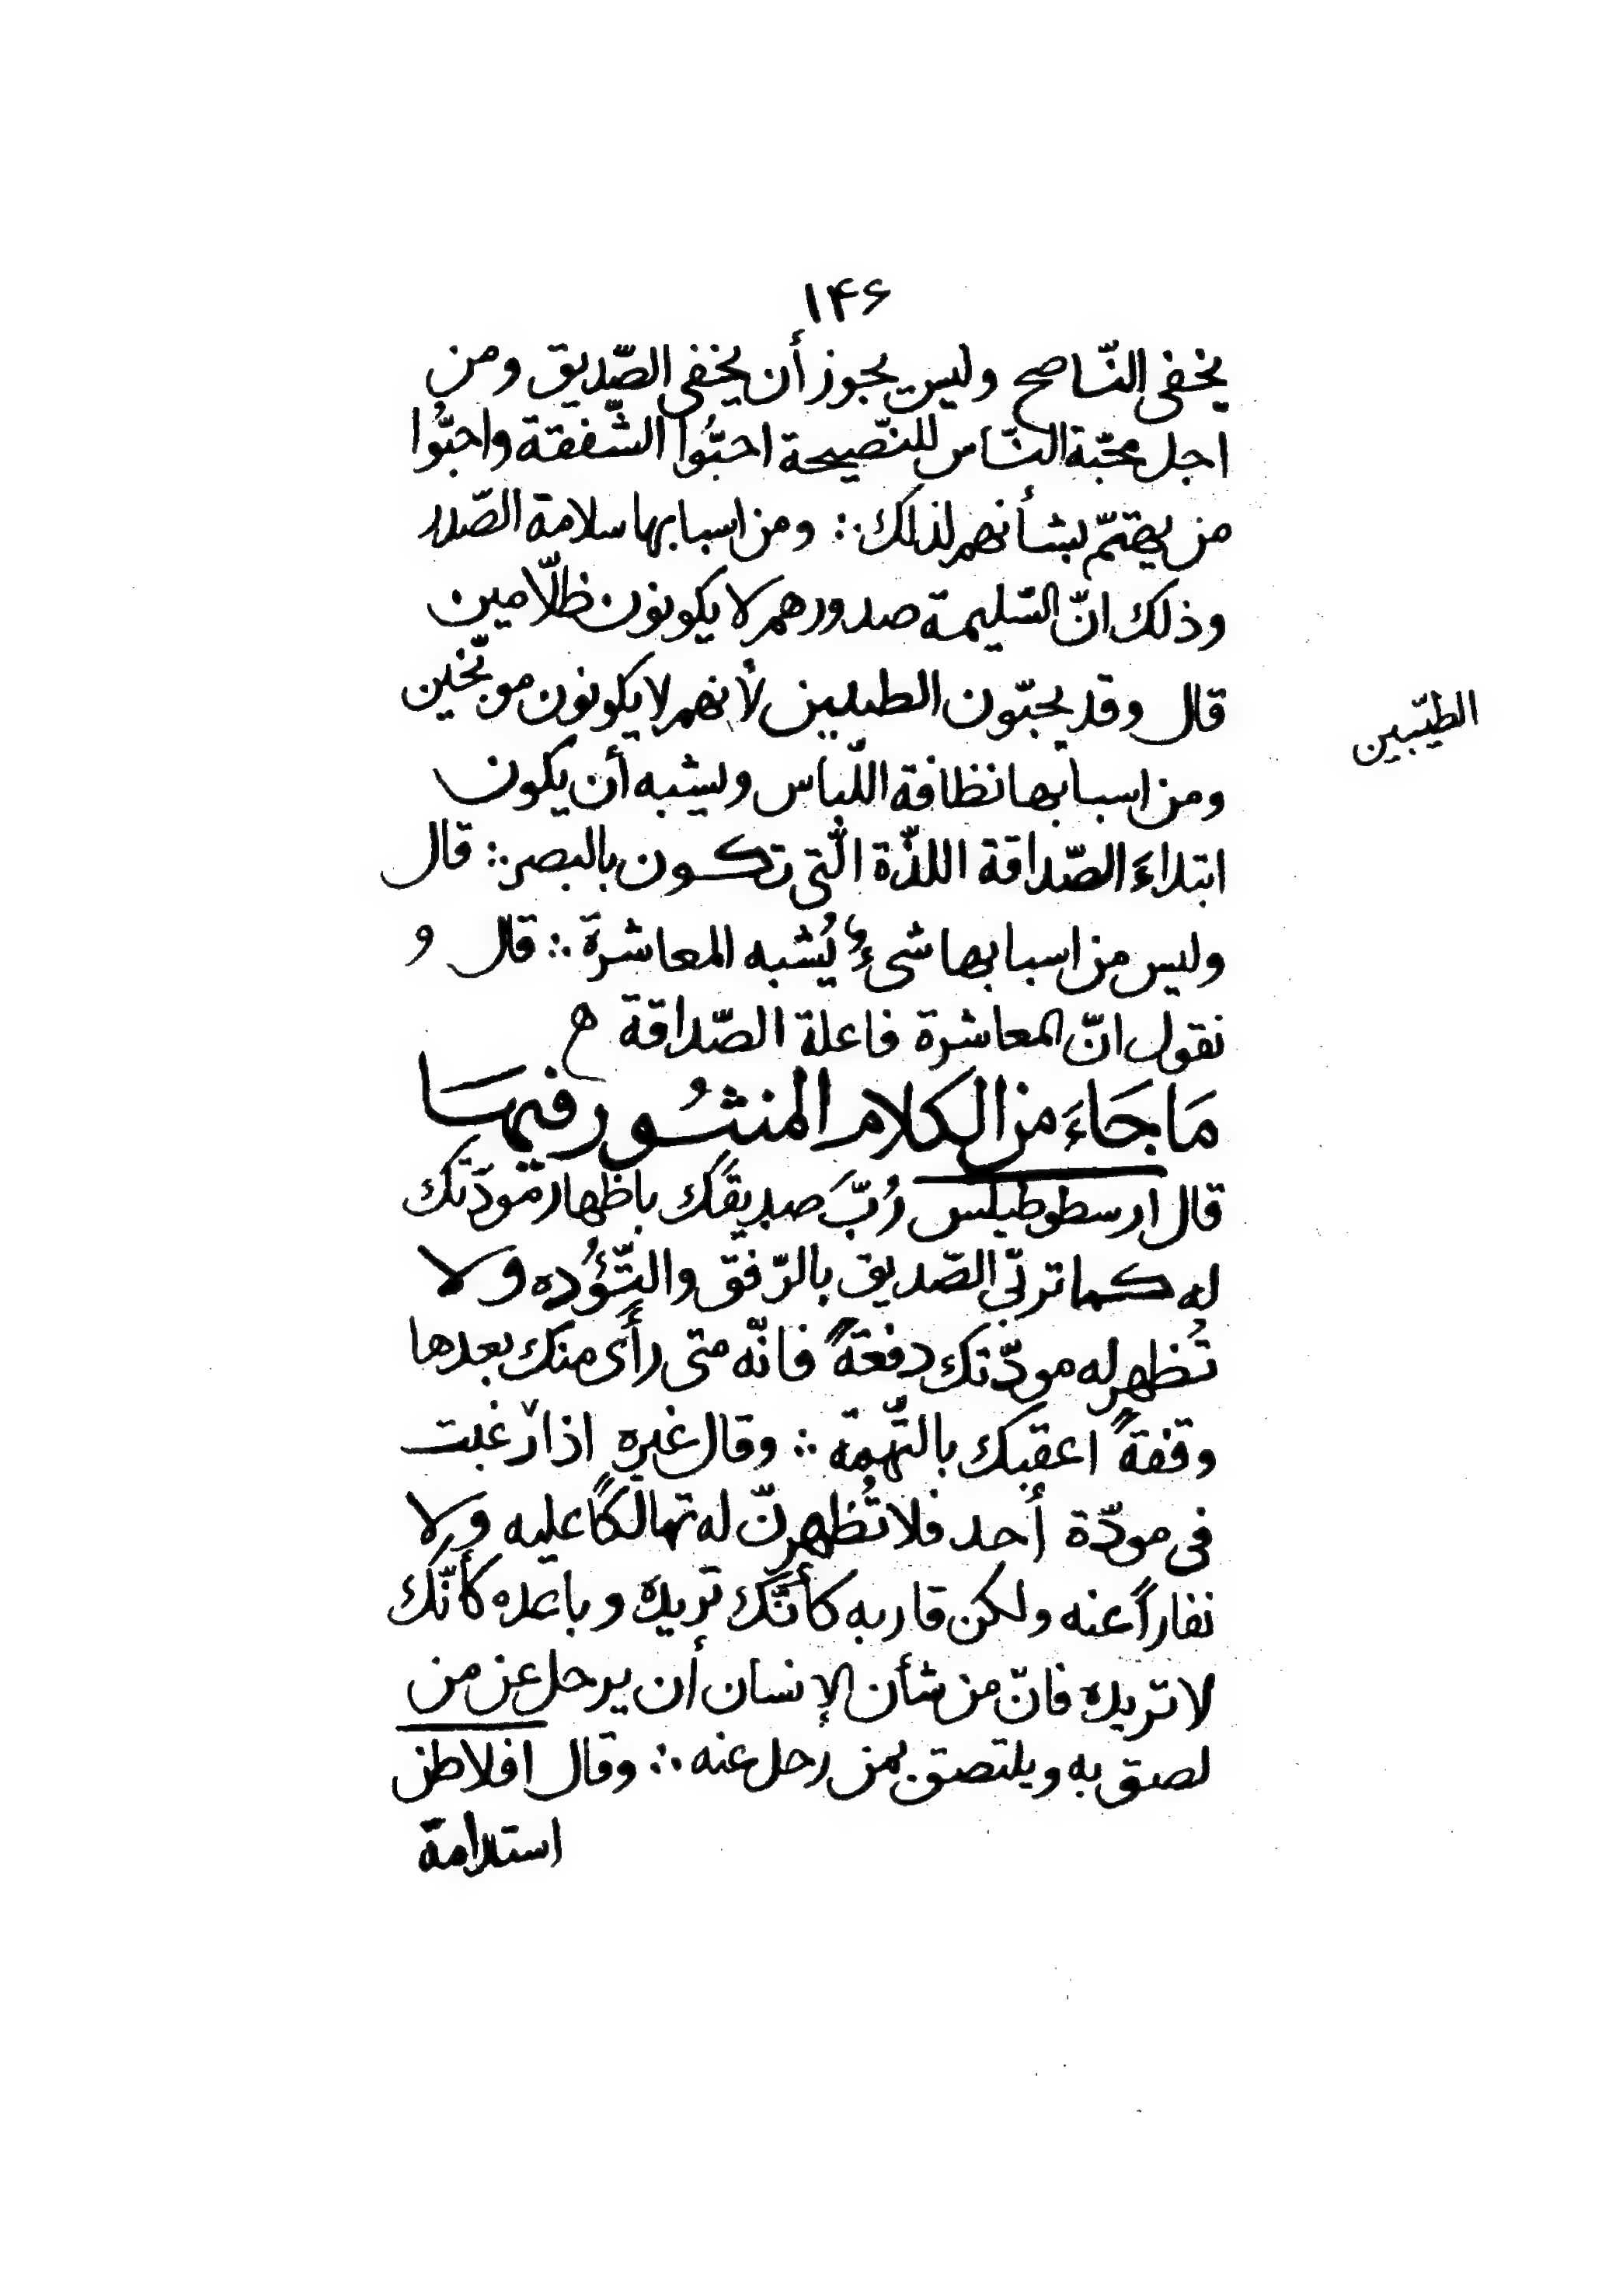 ۱۴۶
يخفى النّاصح وليس يجوز أن يخفى الصّديق ومن
اجل محبّة النّاس للنّصيحة احبّوا الشّفقة واحبُّوا
من يهتمّ بشأنهم لذلك ∴ ومن اسبابها سلامة الصّدر
وذلك انّ السّليمة صدورهم لا يكونون ظلّامين
قال وقد يحبّون الطيبين لأنهم لا يكونون موبّخين
الطيّبين
ومن اسبابها نظافة اللّباس ويشبه أن يكون
ابتداءَ الصّداقة اللذّة الّتى تكون بالبصر ∴ قال
وليس من اسبابها شىءٌ يُشبه المعاشرة ∴ قال و
نقول انّ المعاشرة فاعلة الصّداقة ه
مَا جَاءَ من الكلام المنثُور فيهَا
قال ارسطوطيلس رُبَّ صديقَك باظهار مودّتك
له كما تربّى الصّديق بالرّفق والتّؤُده ولا
تُظهر له مودّتك دفعةً فانّه متى رأى منك بعدها
وقفةً اعقبك بالتّهمة ∴ وقال غيره اذا رغبت
فى مودّة أحد فلا تُظهرنّ له تهالكًا عليه ولا
نفاراً عنه ولكن قاربه كأنّك تريده وباعده كأنّك
لا تريده فانّ من شأن الإنسان أن يرحل عن من
لصق به ويلتصق بمن رحل عنه ∴ وقال افلاطن
استدامة